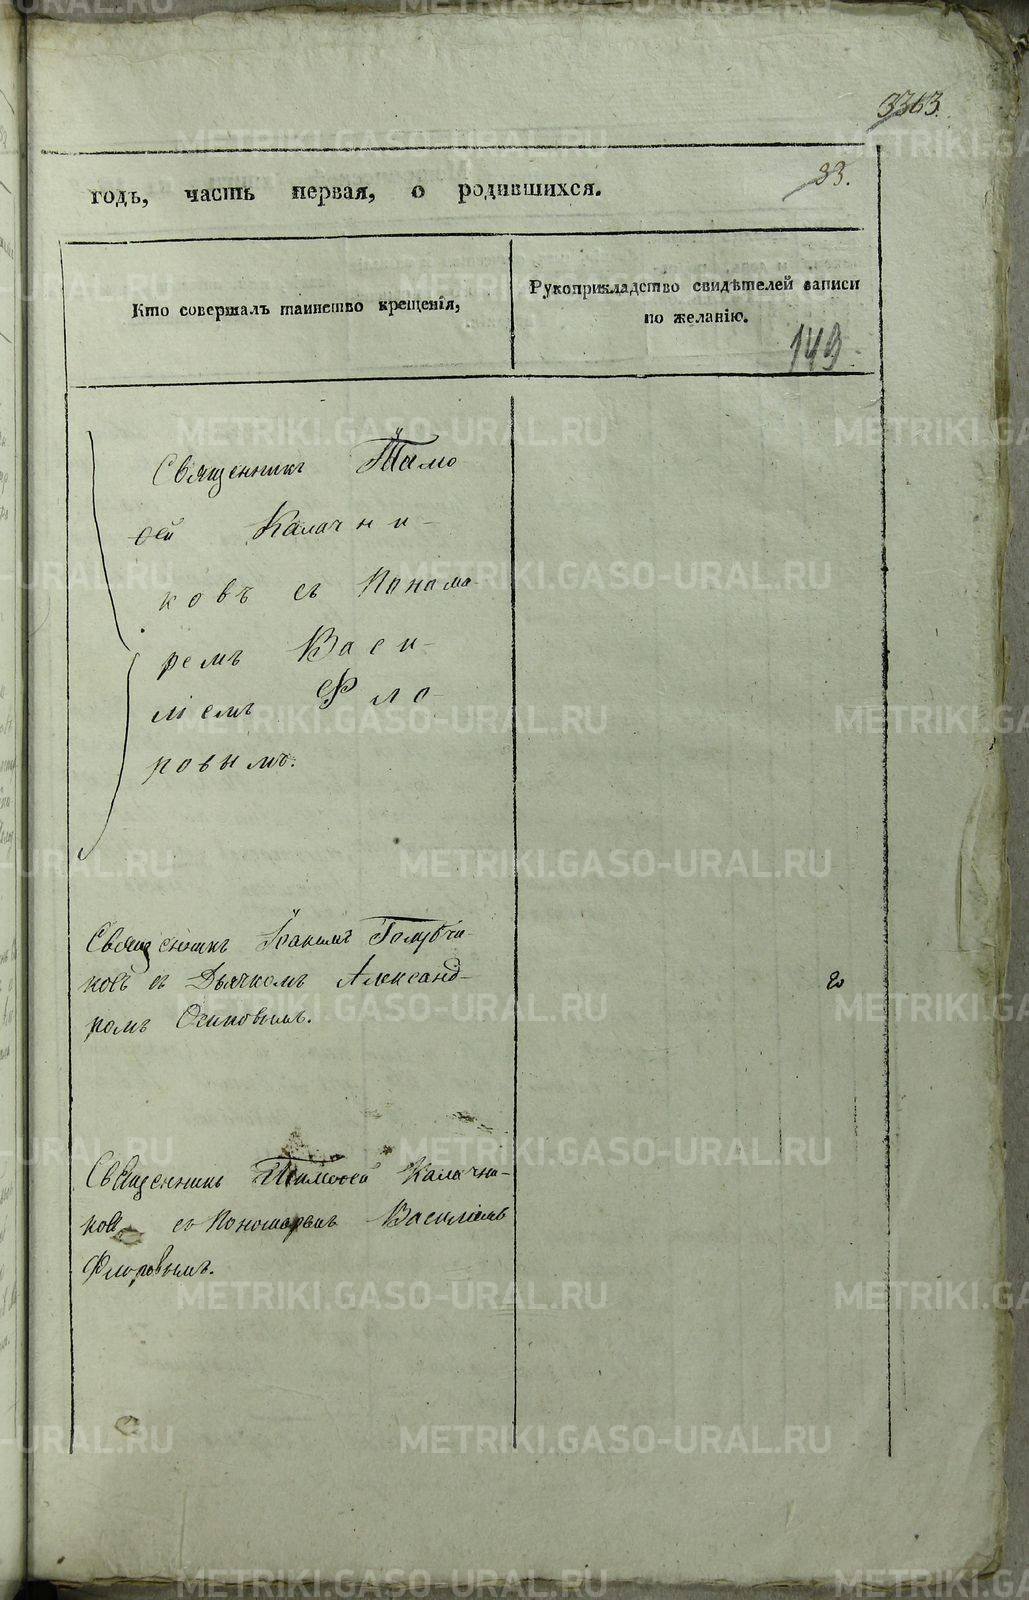 3363.
годъ, часть первая, о родившихся.
33.
Кто совершалъ таинство крещенія,
Рукоприкладство свидѣтелей записи
по желанію.
149.
Священникъ Тимо
ѳей Калачни-
ковъ съ Понома-
ремъ Васи-
ліемъ Фло-
ровымъ.
Священникъ Іоакимъ Голубчи-
ковъ съ Дьячкомъ Александ-
ромъ Осиповымъ.
Священникъ Тимоѳей Калачни-
ковъ съ Пономаремъ Василіемъ
Флоровымъ.
METRIKI.GASO-URAL.RU